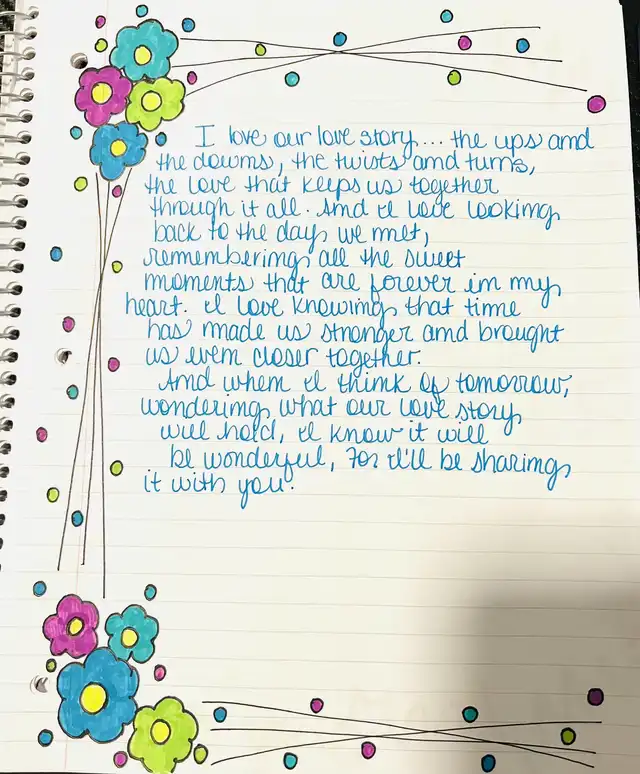 I love our love story... the ups and
the downs, the twists and turns,
the love that keeps us together
through it all. And I love looking
back to the day we met,
remembering all the sweet
moments that are forever in my
heart. I love knowing that time
has made us stronger and brought
us even closer together.
And when I think of tomorrow,
wondering what our love story
will hold, I know it will
be wonderful, for I'll be sharing
it with you.